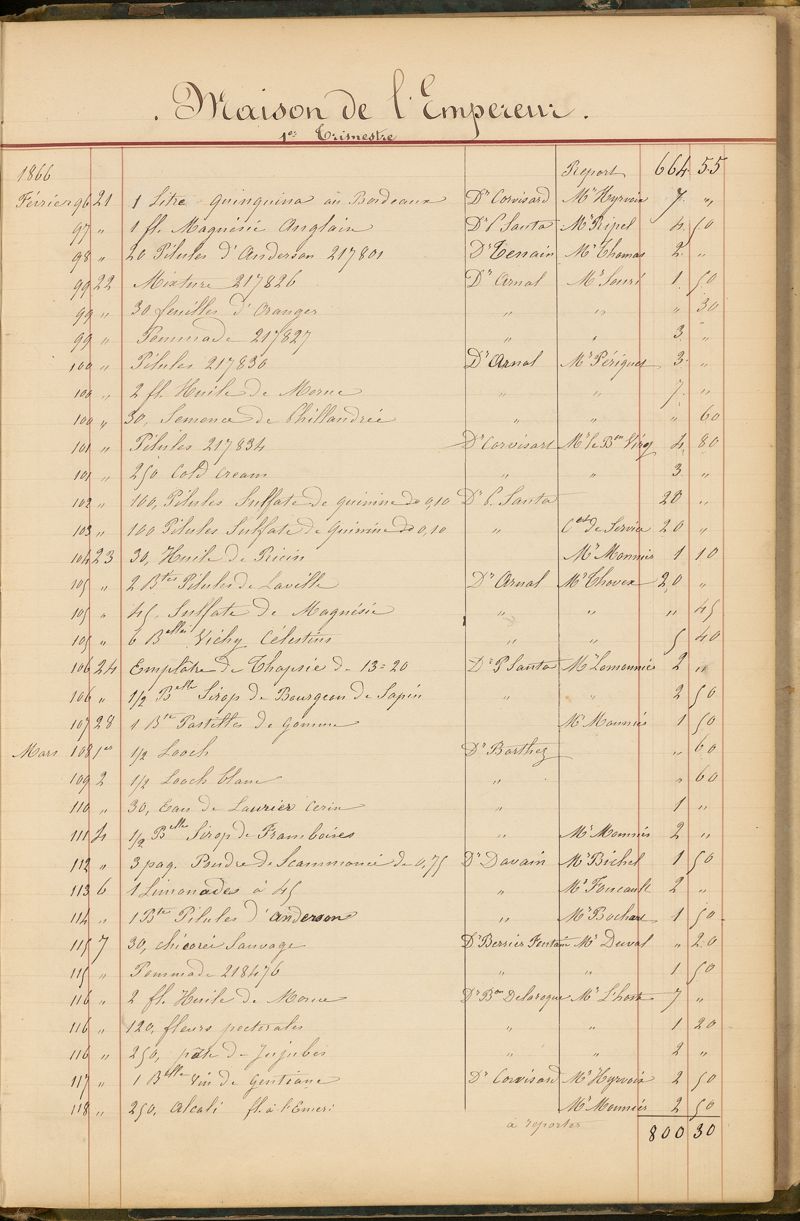 . Maison de l'Empereur .
1er Trimestre
1866 Report 664 55
Février 96 21 1 Litre quinquina au Bordeaux Dr Corvisard Mr Hyrvoix 7 "
97 " 1 fl. Magnésie Anglain Dr P. Santa Mr Ripel 4 50
98 " 20 Pilules d'Anderson 217801 Dr Tenain Mr Thomas 2 "
99 22 Mixture 217826 Dr Arnal Mr 1 50
99 " 30 feuilles d'Oranger " " " 30
99 " Pommade 217827 " " 3 "
100 " Pilules 217830 Dr Arnal Mr Périguet 3 "
100 " 2 fl. Huile de Morue " " 7 "
100 " 30, Semence de Phillandrée " " " 60
101 " Pilules 217834 Dr Corvisart Mr le Bon Viry 4 80
101 " 250 Cold Cream " " 3 "
102 " 100, Pilules Sulfate de quinine de 0,10 Dr P. Santa 20 "
103 " 100 Pilules Sulfate de Quinine de 0,10 " 20 "
104 23 30, Huile de Ricin Mr Monnier 1 10
105 " 2 Btes Pilules de Laville Dr Arnal Mr Thovex 20 "
105 " 45. Sulfate de Magnésie " " " 45
105 " 6 Belles Vichy Célestins " " 5 40
106 24 Emplâtre de Thapsia de 13=20 Dr P Santa Mr Lemonnié 2 "
106 " 1/2 Belle Sirop de Bourgeon de Sapin " " 2 50
107 28 1 Bte Pastilles de Gomme Mr Monniés 1 50
Mars 108 1er 1/2 Looch Dr Barthez " 60
109 2 1/2 Looch blanc " " 60
110 " 30, Eau de Laurier Cerise " 1 "
111 4 1/2 Belle Sirop de Framboises " Mr Monniés 2 "
112 " 3 paq. Poudre de Scammonié de 0,75 Dr Davain Mr Bichel 1 50
113 6 1 Limonades à 45 " Mr Foucault 2 "
114 " 1 Bte Pilules d'Anderson " Mr Bochard 1 50
115 7 30, chicorée Sauvage Dr Berrier Fontaine Mr Duval " 20
115 " Pommade 218476 " " 1 50
116 " 2 fl. Huile de Morue Dr Bon Delaroque Mr L'hoste 7 "
116 " 120, fleurs pectorales " " 1 20
116 " 250, pâte de Jujubes " " 2 "
117 " 1 Belle Vin de Gentiane Dr Corvisard Mr Hyrvoix 2 50
118 " 250, Alcali fl. à l'Emeri Mr Monniés 2 50
à reporter 800 30